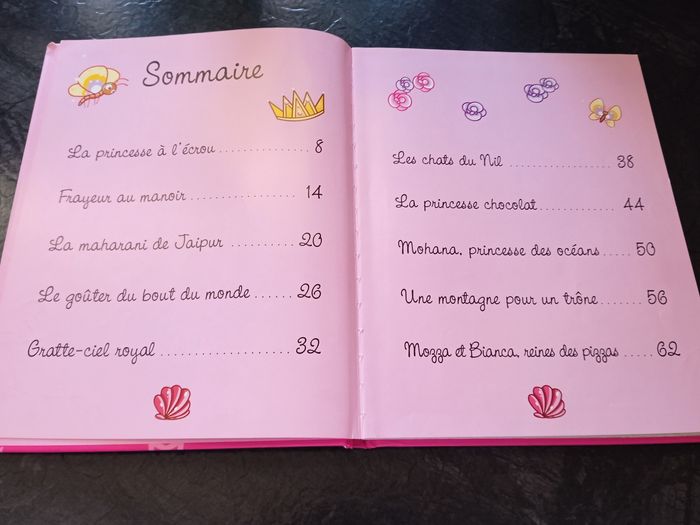 Sommaire
La princesse à l'écrou .............. 8
Frayeur au manoir ................ 14
La maharani de Jaipur .......... 20
Le goûter du bout du monde ...... 26
Gratte-ciel royal .................... 32
Les chats du Nil ................ 38
La princesse chocolat ............ 44
Mohana, princesse des océans ..... 50
Une montagne pour un trône ....... 56
Mozza et Bianca, reines des pizzas ..... 62